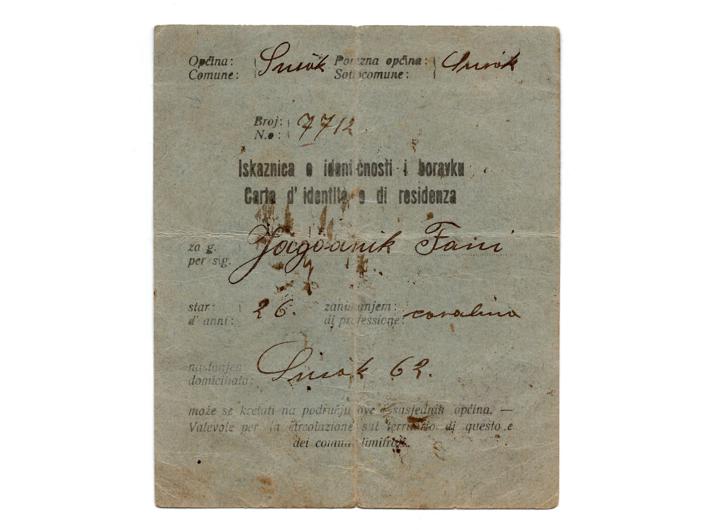 Općina: Sušak Porezna općina: Sušak
Comune: Sottocomune:
Broj: 7712
N.o:
Iskaznica o identičnosti i boravku
Carta d'identita e di residenza
za g. Jagodnik Fani
per sig.
star: 26. zanimanjem: casalina
d'anni: di professione:
nastanjen Sušak 62.
domiciliata:
može se kretati na području ove i susjednih općina. —
Valevole per la circolazione sul territorio di questo e
dei comuni limitrofi.